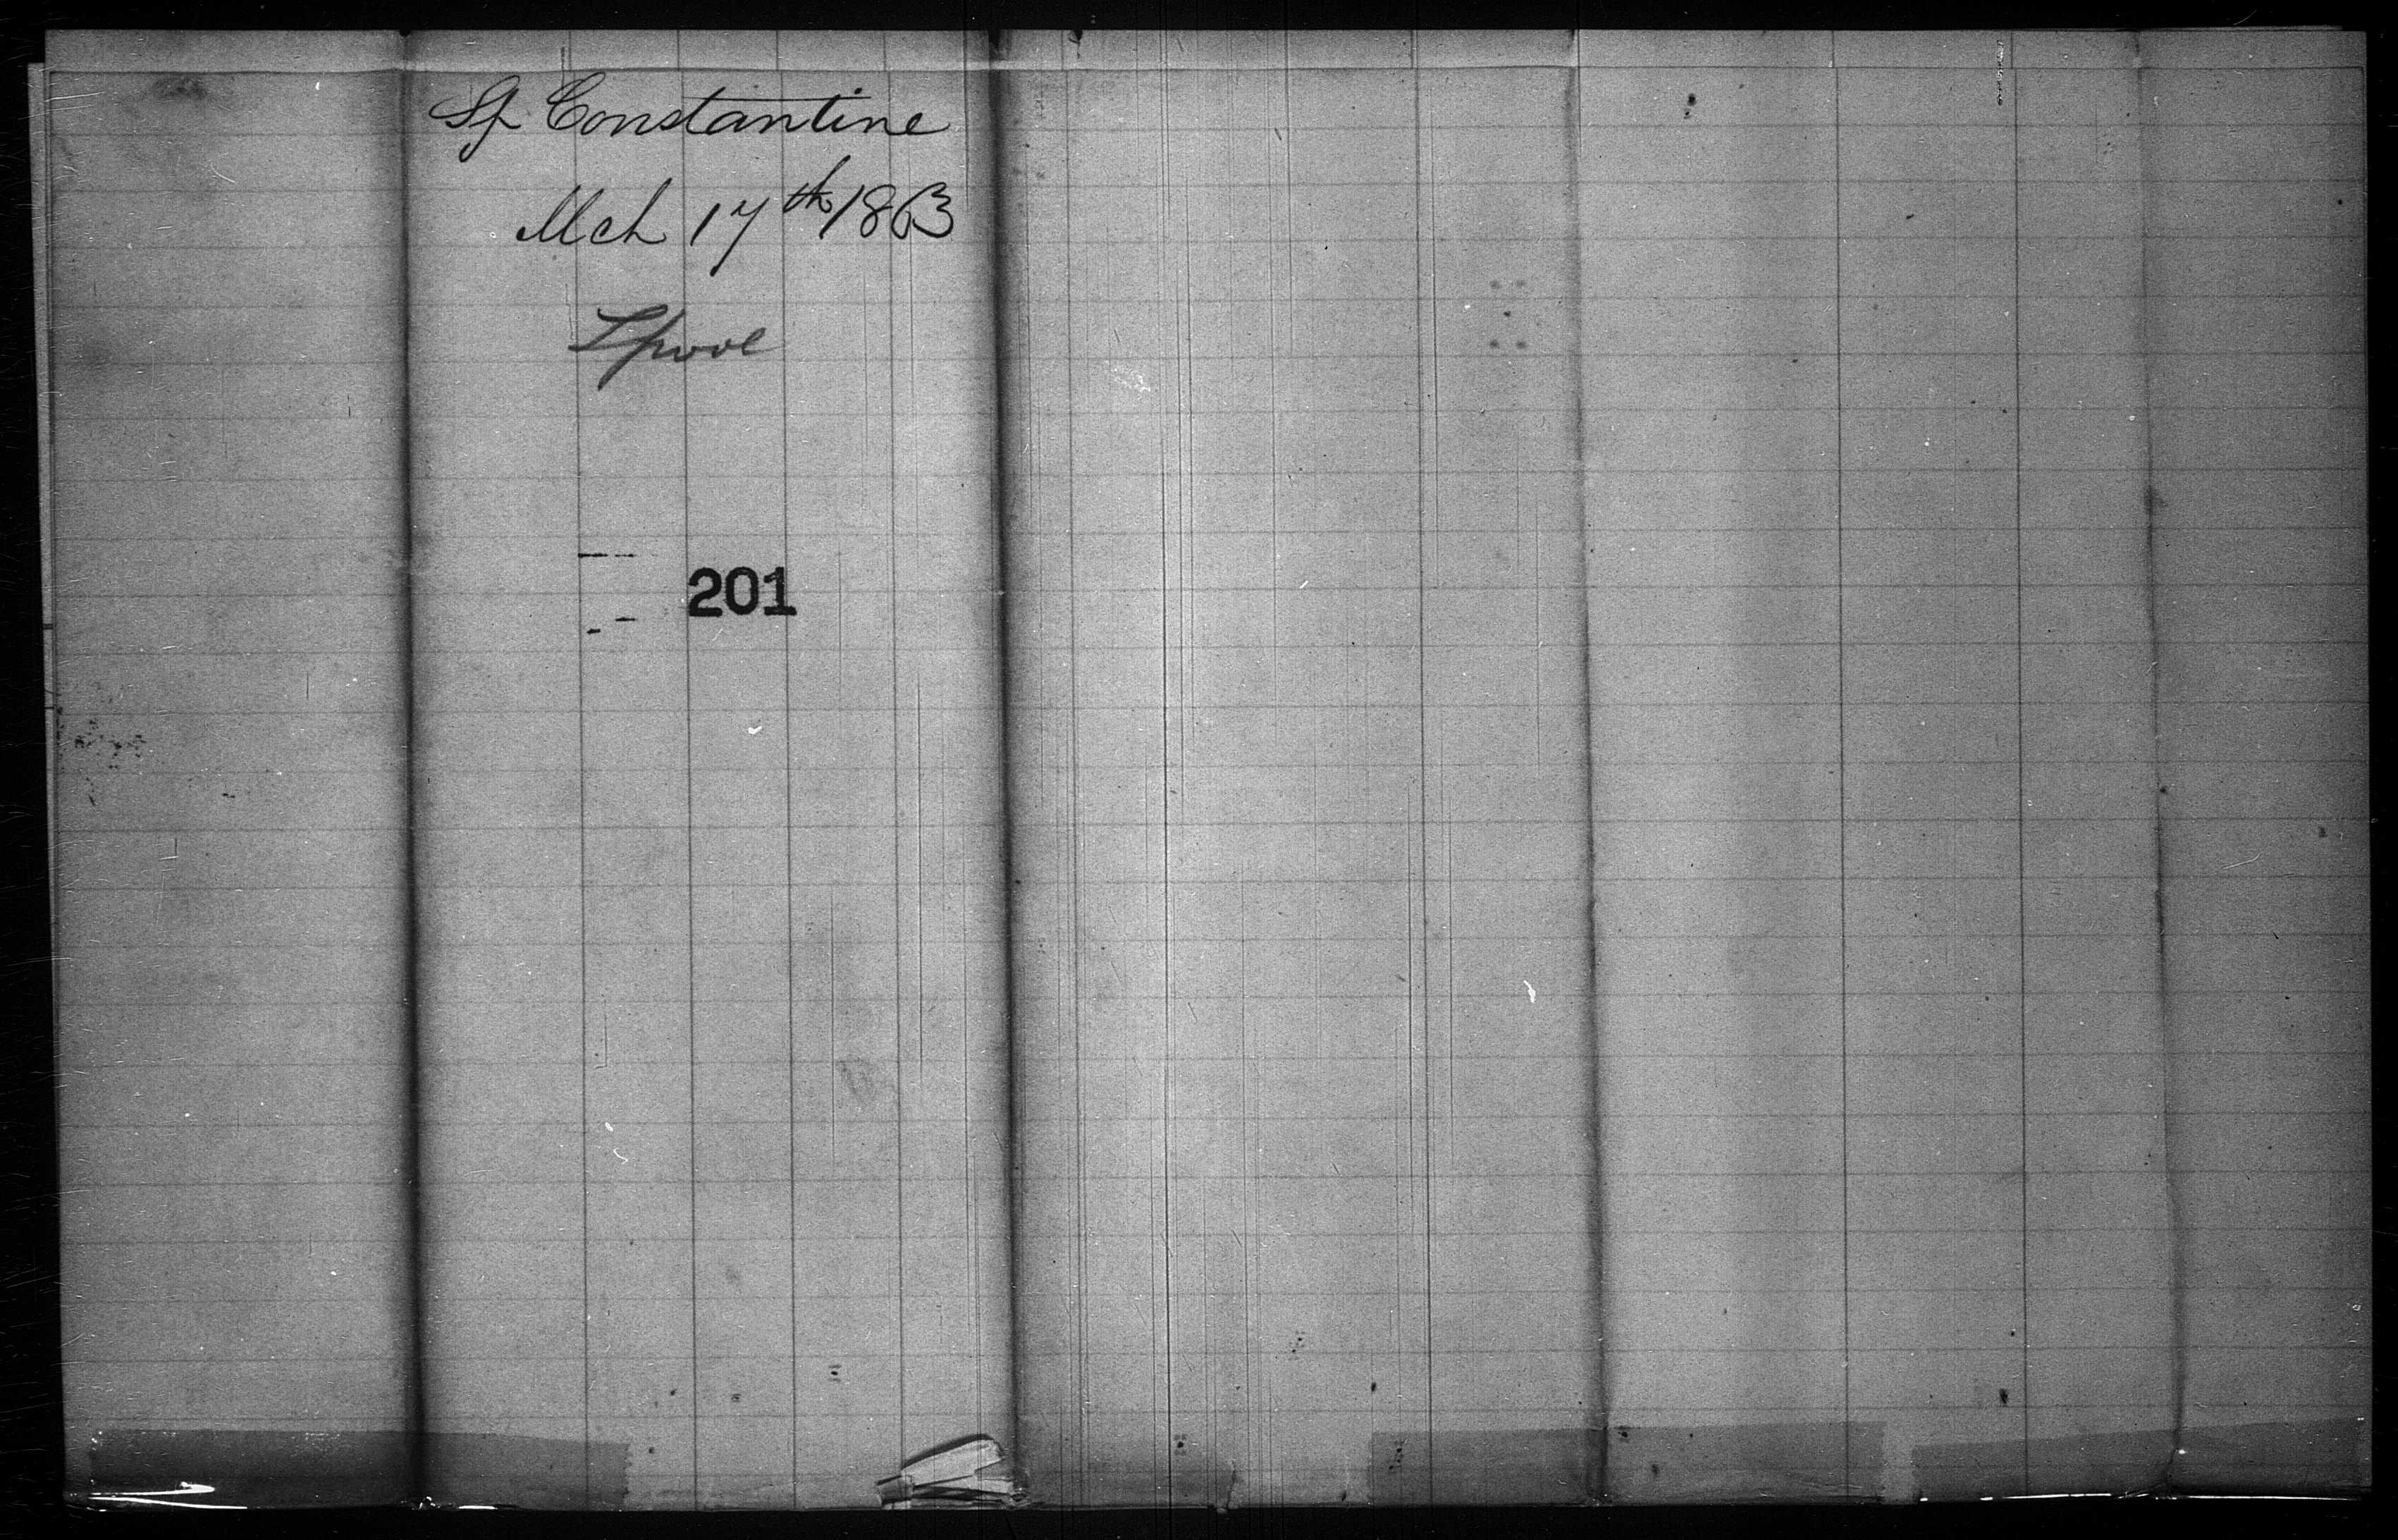 Sp Constantine
Mch 17th 1863
Lpool
201